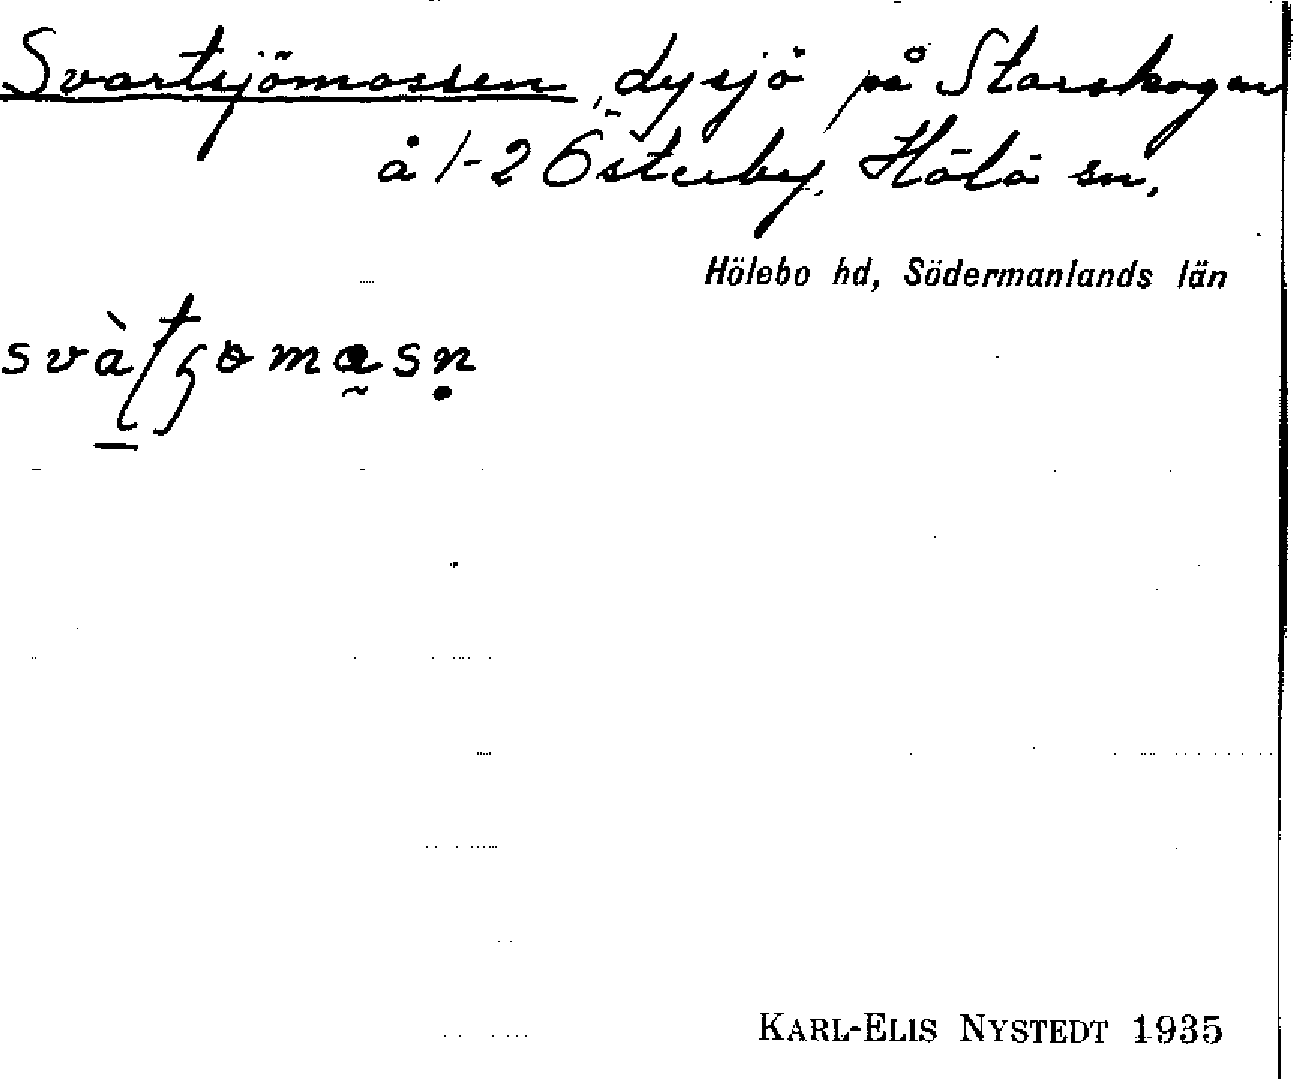 Svartsjömossen, dysjö på Storskogen
å 1-2 Österby, Hölö sn.
Hölebo hd, Södermanlands län
KARL-ELIS NYSTEDT 1935